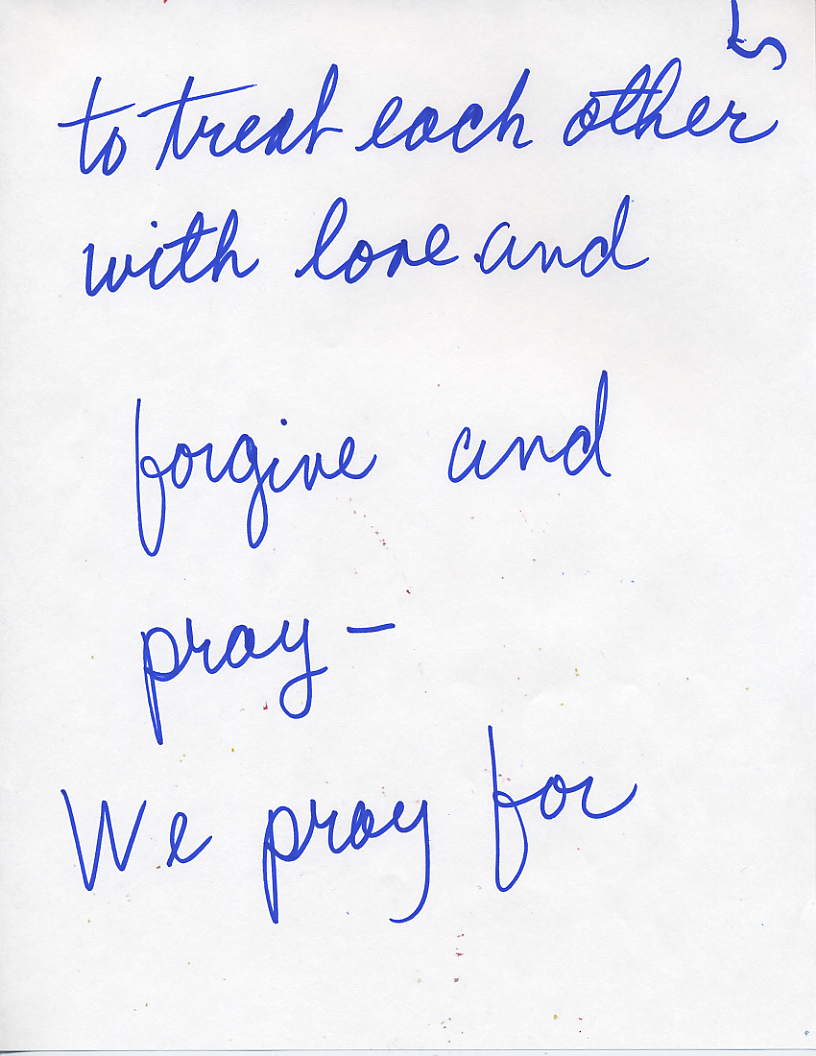 to treat each other
with love and
forgive and
pray –
We pray for